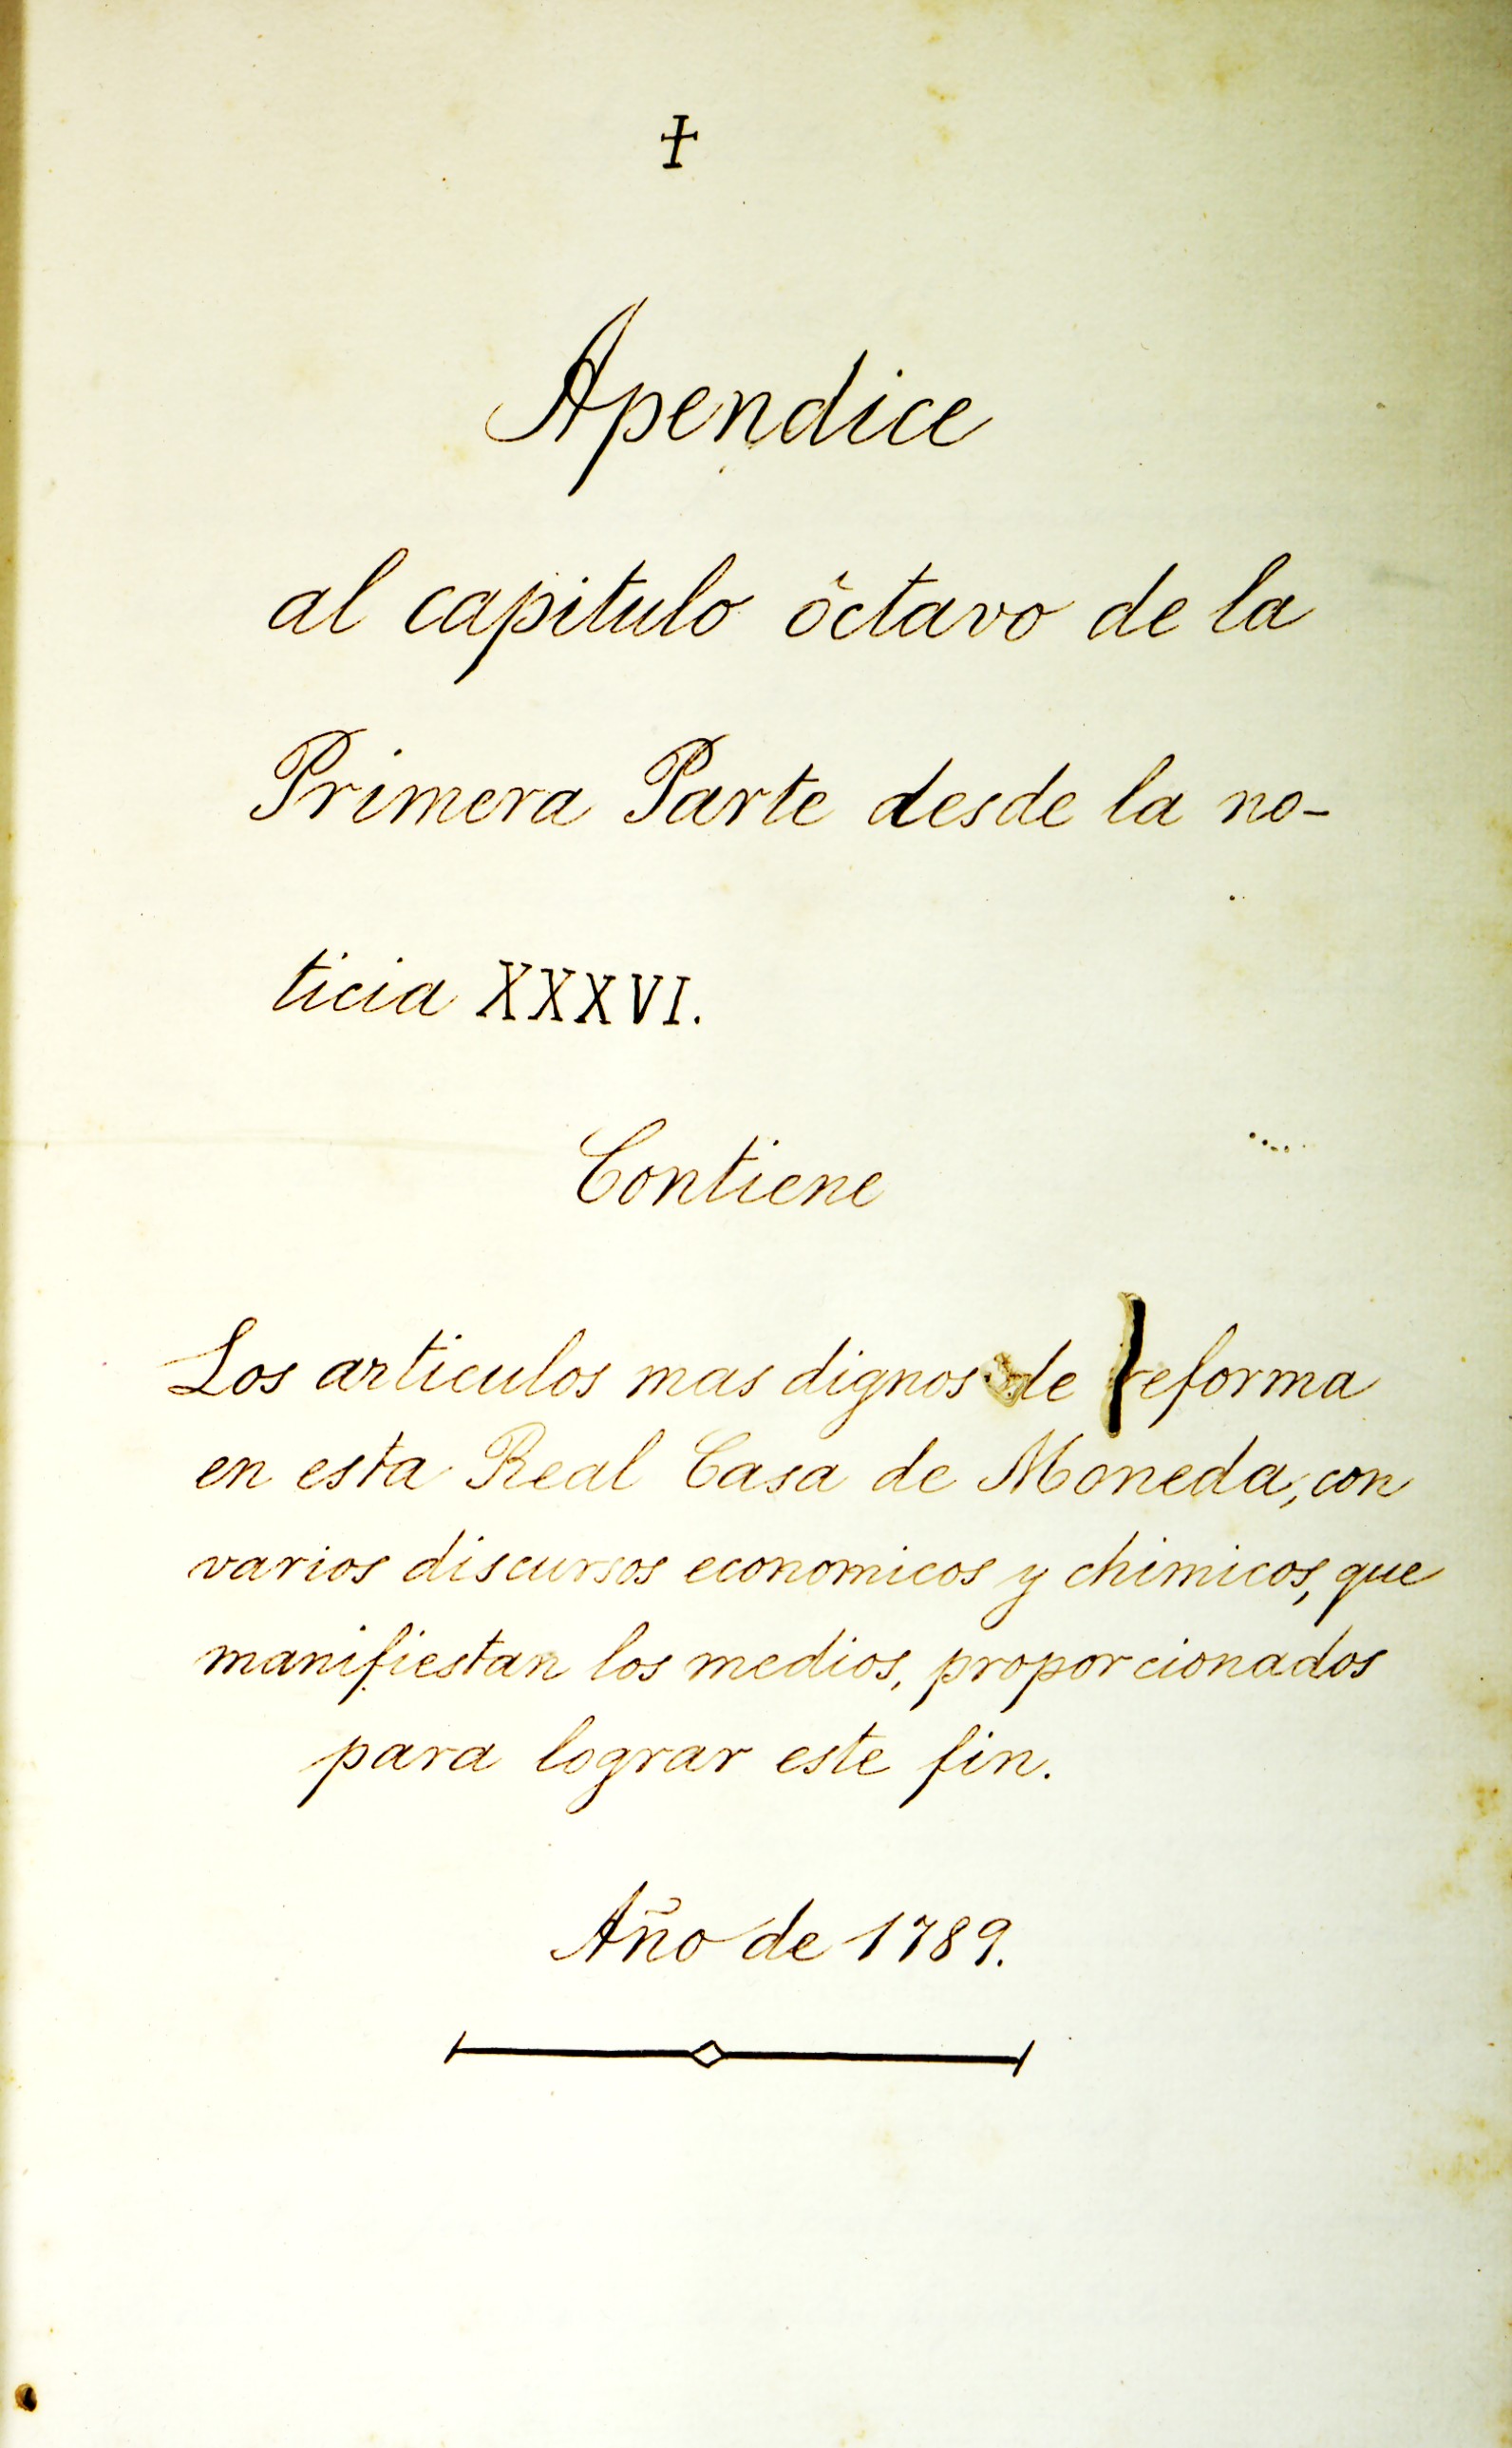 ✝
Apendice
al capitulo òctavo de la
Primera Parte desde la no-
ticia XXXVI.
Contiene
Los articulos mas dignos de reforma
en esta Real Casa de Moneda, con
varios discursos economicos y chimicos, que
manifiestan los medios, proporcionados
para lograr este fin.
Año de 1789.